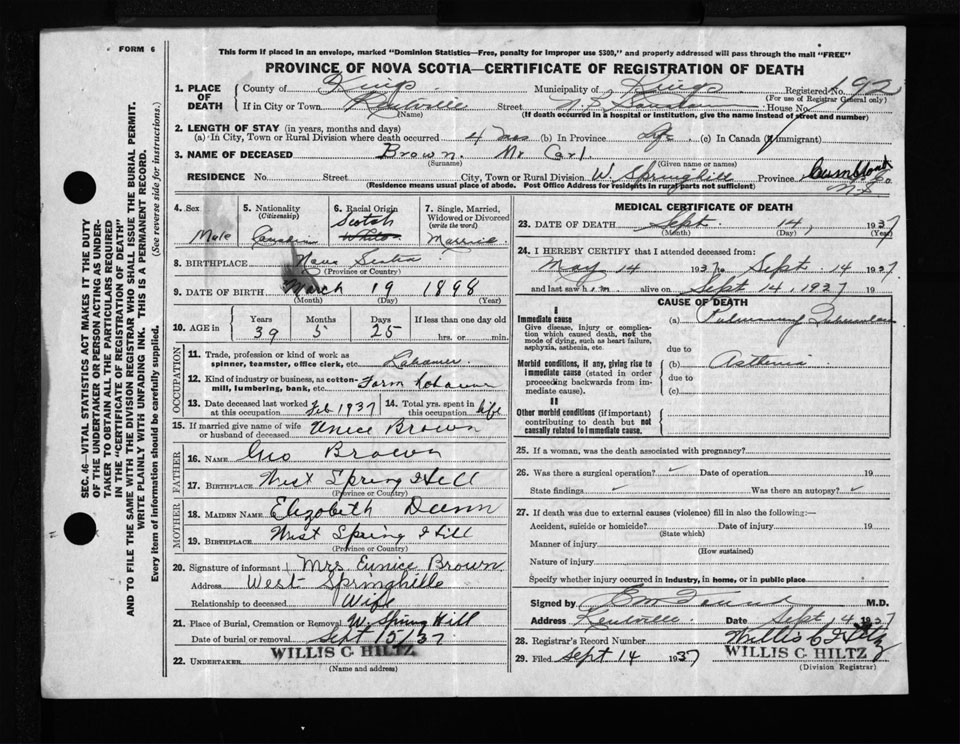 FORM 6
This form if placed in an envelope, marked "Dominion Statistics—Free, penalty for improper use $300," and properly addressed will pass through the mail "FREE"
PROVINCE OF NOVA SCOTIA—CERTIFICATE OF REGISTRATION OF DEATH
1. PLACE OF DEATH County of Kings Municipality of Kings Registered No. 192
(For use of Registrar General only)
If in City or Town Kentville Street N.S. House No.
(Name) (If death occurred in a hospital or institution, give the name instead of street and number)
2. LENGTH OF STAY (in years, months and days)
(a) In City, Town or Rural Division where death occurred 4 mos (b) In Province Life (c) In Canada (if immigrant)
3. NAME OF DECEASED Brown. Mr Carl.
(Surname) (Given name or names)
RESIDENCE No. Street City, Town or Rural Division W. Springhill Province Cumb Co N.S.
(Residence means usual place of abode. Post Office Address for residents in rural parts not sufficient)
4. Sex Male
5. Nationality (Citizenship) Canadian
6. Racial Origin Scotch White
7. Single, Married, Widowed or Divorced (write the word) Married
8. BIRTHPLACE Nova Scotia
(Province or Country)
9. DATE OF BIRTH March 19 1898
(Month) (Day) (Year)
10. AGE in Years 39 Months 5 Days 25 If less than one day old hrs. or min.
OCCUPATION
11. Trade, profession or kind of work as spinner, teamster, office clerk, etc. Labourer
12. Kind of industry or business, as cotton-mill, lumbering, bank, etc. Farm Labourer
13. Date deceased last worked at this occupation Feb 1937 14. Total yrs. spent in this occupation life
15. If married give name of wife or husband of deceased Unice Brown
FATHER
16. NAME Geo Brown
17. BIRTHPLACE West Spring Hill
(Province or Country)
MOTHER
18. MAIDEN NAME Elizabeth Dunn
19. BIRTHPLACE West Spring Hill
(Province or Country)
20. Signature of informant Mrs. Eunice Brown
Address West Springhille
Relationship to deceased Wife
21. Place of Burial, Cremation or Removal W. Spring Hill
Date of burial or removal Sept 15/37
22. UNDERTAKER WILLIS C. HILTZ
(Name and address)
MEDICAL CERTIFICATE OF DEATH
23. DATE OF DEATH Sept. 14, 1937
(Month) (Day) (Year)
24. I HEREBY CERTIFY that I attended deceased from:
May 14 1937 to Sept. 14 1937
and last saw him alive on Sept 14, 1937 19
CAUSE OF DEATH
I
Immediate cause
Give disease, injury or complication which caused death, not the mode of dying, such as heart failure, asphyxia, asthenia, etc.
(a) Pulmonary Tuberculosis
due to
Morbid conditions, if any, giving rise to immediate cause (stated in order proceeding backwards from immediate cause).
(b) Asthenia
due to
(c)
II
Other morbid conditions (if important) contributing to death but not causally related to immediate cause.
25. If a woman, was the death associated with pregnancy?
26. Was there a surgical operation? Date of operation 19
State findings Was there an autopsy?
27. If death was due to external causes (violence) fill in also the following:—
Accident, suicide or homicide? Date of injury 19
(State which)
Manner of injury
(How sustained)
Nature of injury
Specify whether injury occurred in industry, in home, or in public place
Signed by M.D.
Address Kentville Date Sept 14 1937
28. Registrar's Record Number Willis C Hiltz
29. Filed Sept 14 1937 WILLIS C. HILTZ
(Division Registrar)
SEC. 46—VITAL STATISTICS ACT MAKES IT THE DUTY
OF THE UNDERTAKER OR PERSON ACTING AS UNDER-
TAKER TO OBTAIN ALL THE PARTICULARS REQUIRED
IN THE "CERTIFICATE OF REGISTRATION OF DEATH"
AND TO FILE THE SAME WITH THE DIVISION REGISTRAR WHO SHALL ISSUE THE BURIAL PERMIT.
WRITE PLAINLY WITH UNFADING INK. THIS IS A PERMANENT RECORD.
Every item of information should be carefully supplied. (See reverse side for instructions.)